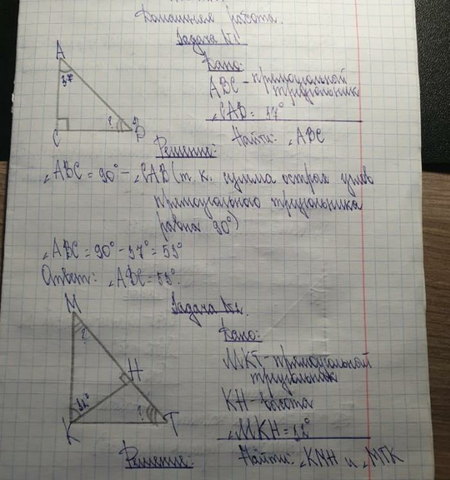 Домашняя работа.
Задача №1
Дано:
A
37°
C
?
B
ABC - прямоугольный
треугольник
∠CAB = 37°
Найти: ∠ABC
Решение:
∠ABC = 90° - ∠CAB (т. к. сумма острых углов
прямоугольного треугольника
равна 90°)
∠ABC = 90° - 37° = 53°
Ответ: ∠ABC = 53°.
Задача №2.
Дано:
M
?
H
K
?
T
MKT - прямоугольный
треугольник
KH - высота
∠MKH =
Решение:
Найти: ∠KMH и ∠MTK